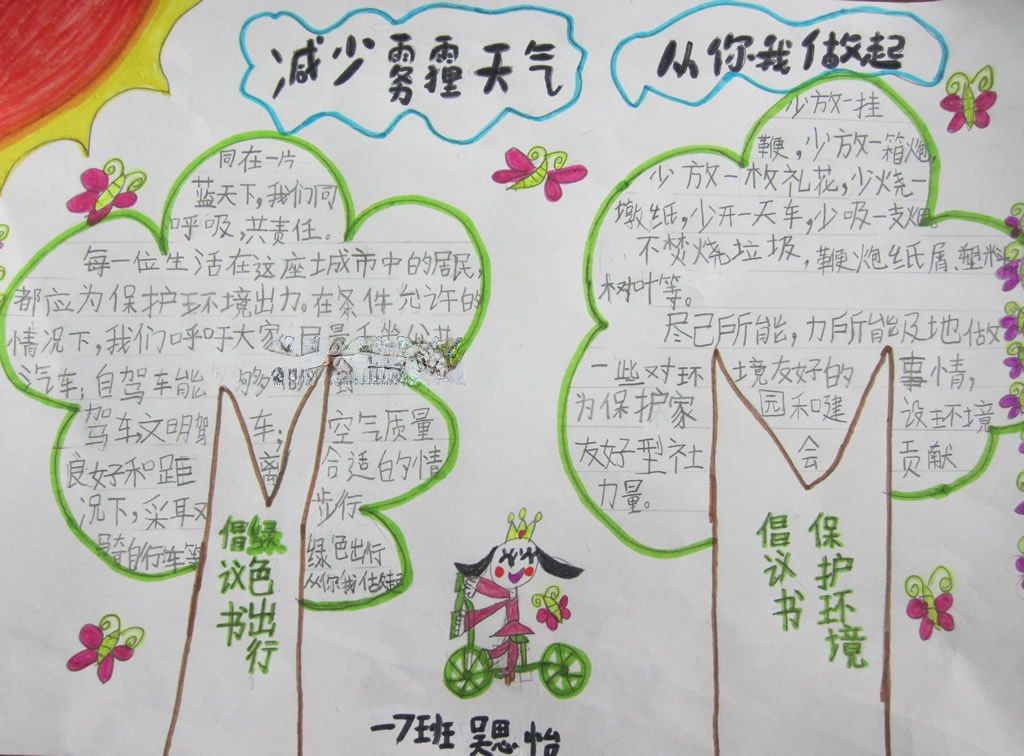 减少雾霾天气
从你我做起
同在一片
蓝天下,我们同
呼吸,共责任。
每一位生活在这座城市中的居民,
都应为保护环境出力。在条件允许的
情况下,我们呼吁大家
汽车;自驾车能够
驾车,文明驾车;空气质量
良好和距离合适的情
况下,采取步行
骑自行车等
绿色出行
从你我做起
绿色出行
倡议书
少放一挂
鞭,少放一箱炮,
少放一枚礼花,少烧一
墩纸,少开一天车,少吸一支烟。
不焚烧垃圾,鞭炮纸屑、塑料
树叶等。
尽己所能,力所能及地做
一些对环境友好的事情,
为保护家园和建设环境
友好型社会贡献
力量。
保护环境
倡议书
一7班 吴思怡